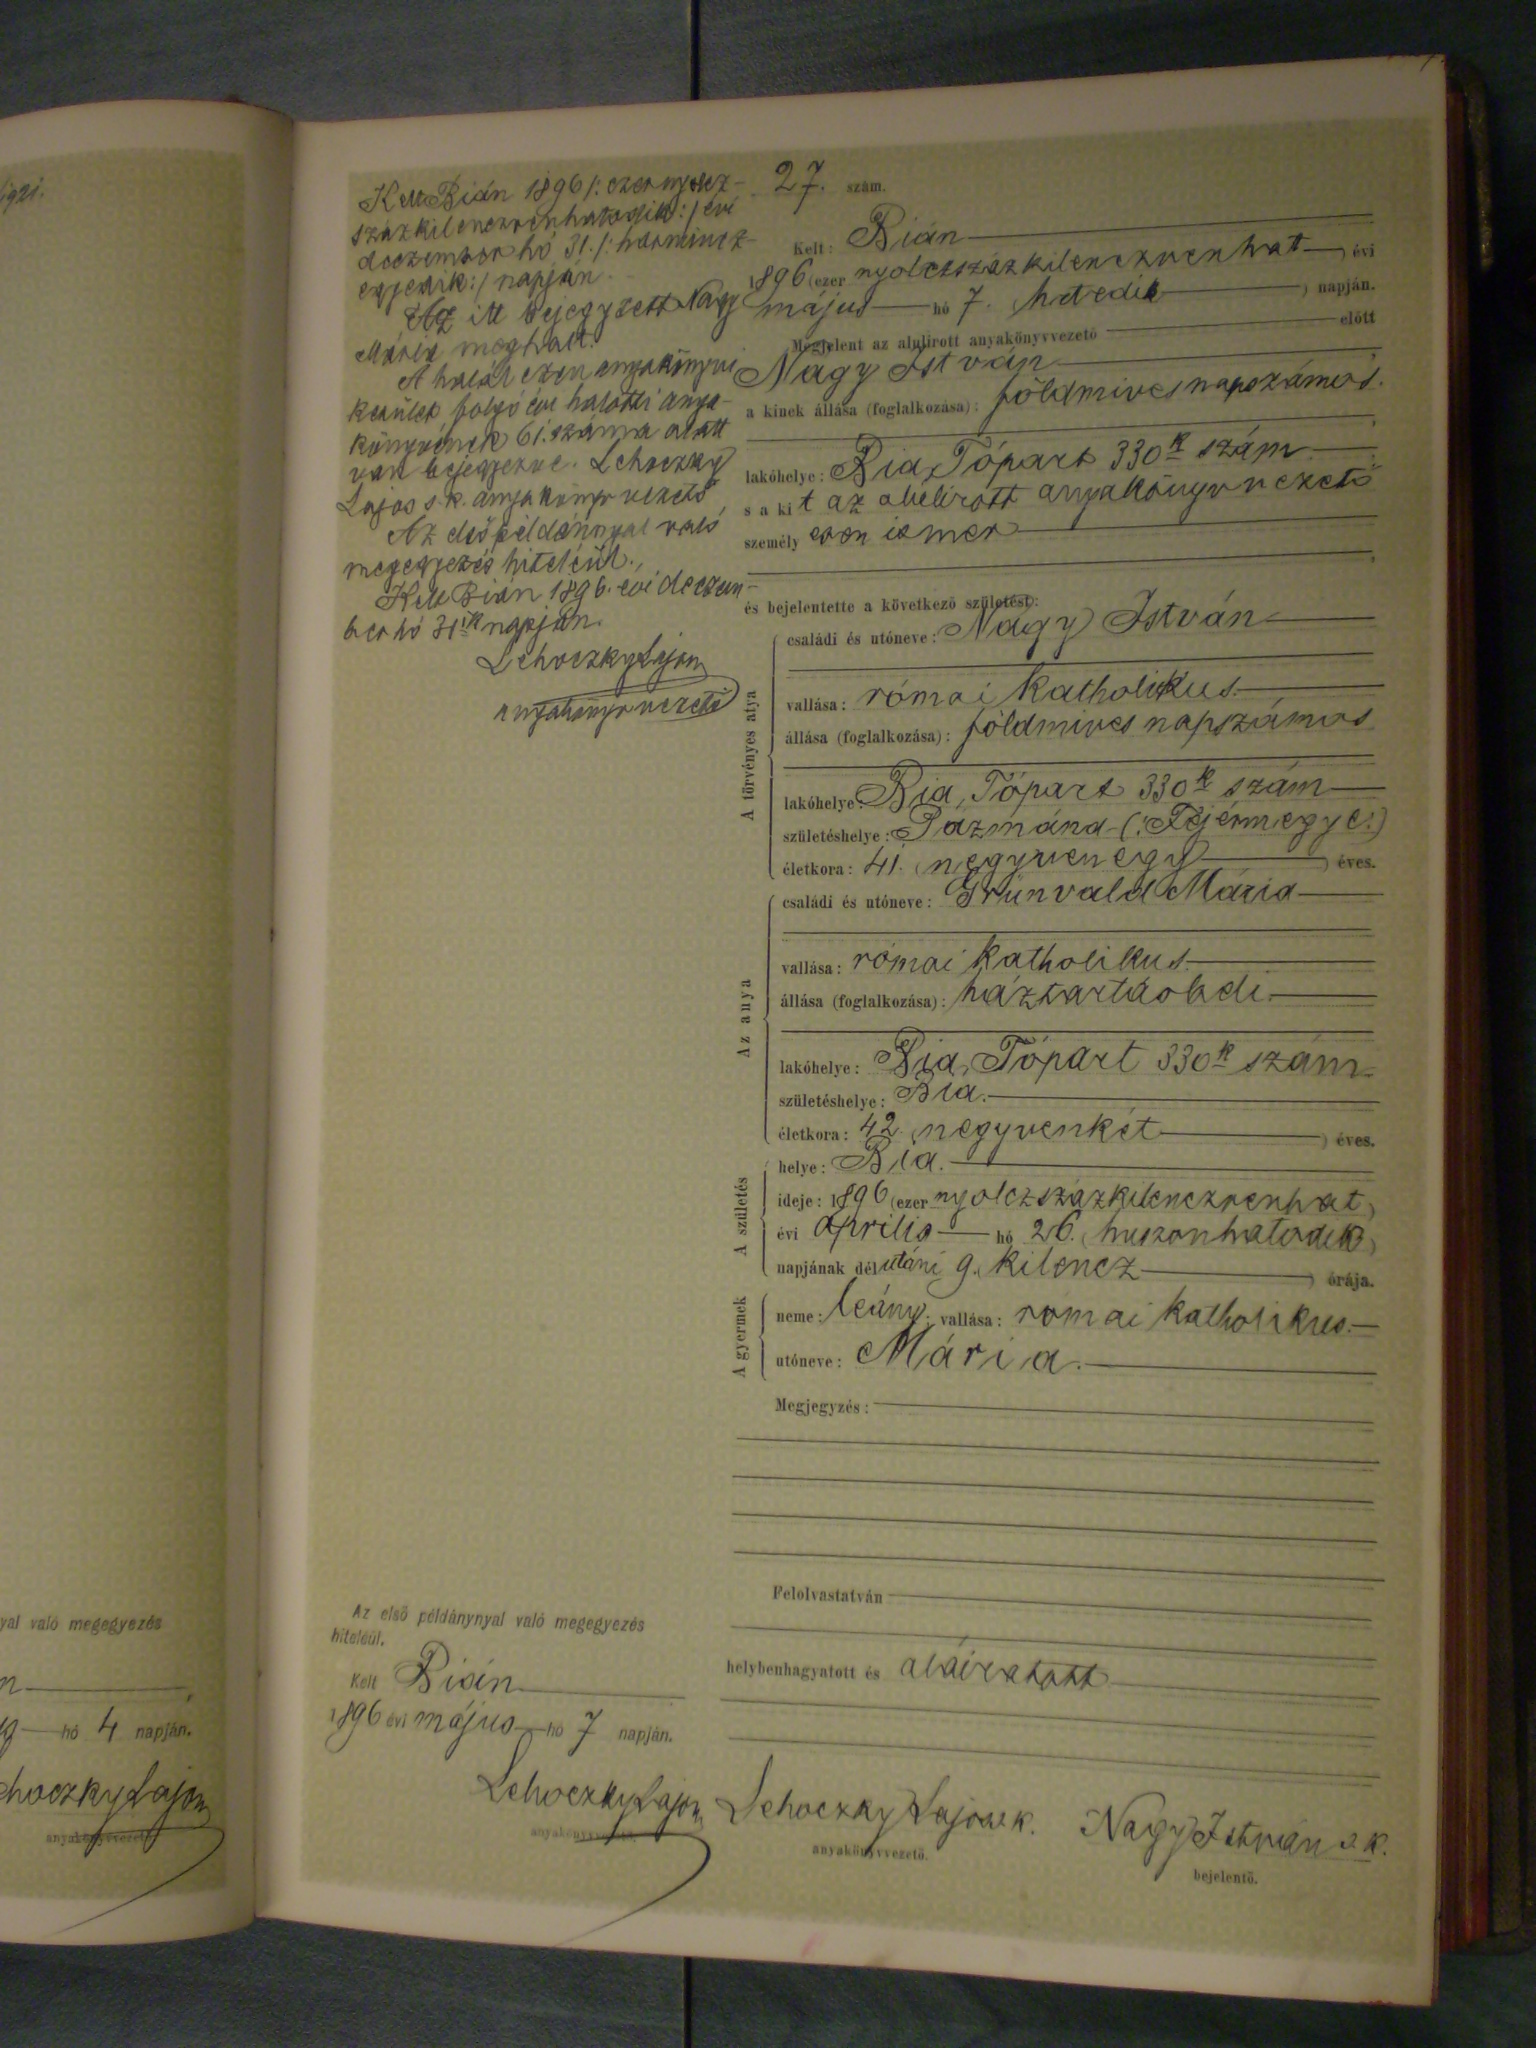 27. szám.
Kelt Bián 1896 /: ezernyolcz-
százkilenczvenhatodik :/ évi
deczember hó 31. /: harmincz-
egyedik :/ napján.
Az itt bejegyzett Nagy
Mária meghalt.
A halál ezen anyakönyvi
kerület folyó évi halotti anya-
könyvének 61. száma alatt
van bejegyezve. Lehoczky
Lajos s. k. anyakönyvvezető
Az első példánnyal való
megegyezés hiteléül.
Kelt Bián 1896. évi deczem-
ber hó 31ik napján.
Lehoczky Lajos
anyakönyvvezető
Kelt: Bián
1896 (ezer nyolczszázkilenczvenhat ) évi
május hó 7. ( hetedik ) napján.
Megjelent az alulirott anyakönyvvezető előtt
Nagy István
a kinek állása (foglalkozása): földmives napszámos.
lakóhelye: Bia, Tópart 330ik szám
s a kit az alulirott anyakönyvvezető
személyesen ismer
és bejelentette a következő születést:
A törvényes atya
családi és utóneve: Nagy István
vallása: római katholikus.
állása (foglalkozása): földmives napszámos
lakóhelye: Bia, Tópart 330ik szám
születéshelye: Pázmánd (: Fejérmegye :)
életkora: 41. ( negyvenegy ) éves.
Az anya
családi és utóneve: Grünvald Mária
vallása: római katholikus.
állása (foglalkozása): háztartásbeli.
lakóhelye: Bia, Tópart 330ik szám.
születéshelye: Bia.
életkora: 42. ( negyvenkét ) éves.
A születés
helye: Bia.
ideje: 1896 (ezer nyolczszázkilenczvenhat )
évi április hó 26. ( huszonhatodik )
napjának délutáni 9. ( kilencz ) órája.
A gyermek
neme: leány; vallása: római katholikus.
utóneve: Mária.
Megjegyzés:
Felolvastatván
helybenhagyatott és aláiratott
Az első példánynyal való megegyezés
hiteléül.
Kelt Bián
1896 évi május hó 7 napján.
Lehoczky Lajos
anyakönyvvezető.
Lehoczky Lajos s. k.
anyakönyvvezető.
Nagy István s. k.
bejelentő.
yal való megegyezés
n
hó 4 napján.
hoczky Lajos
anyakönyvvezető